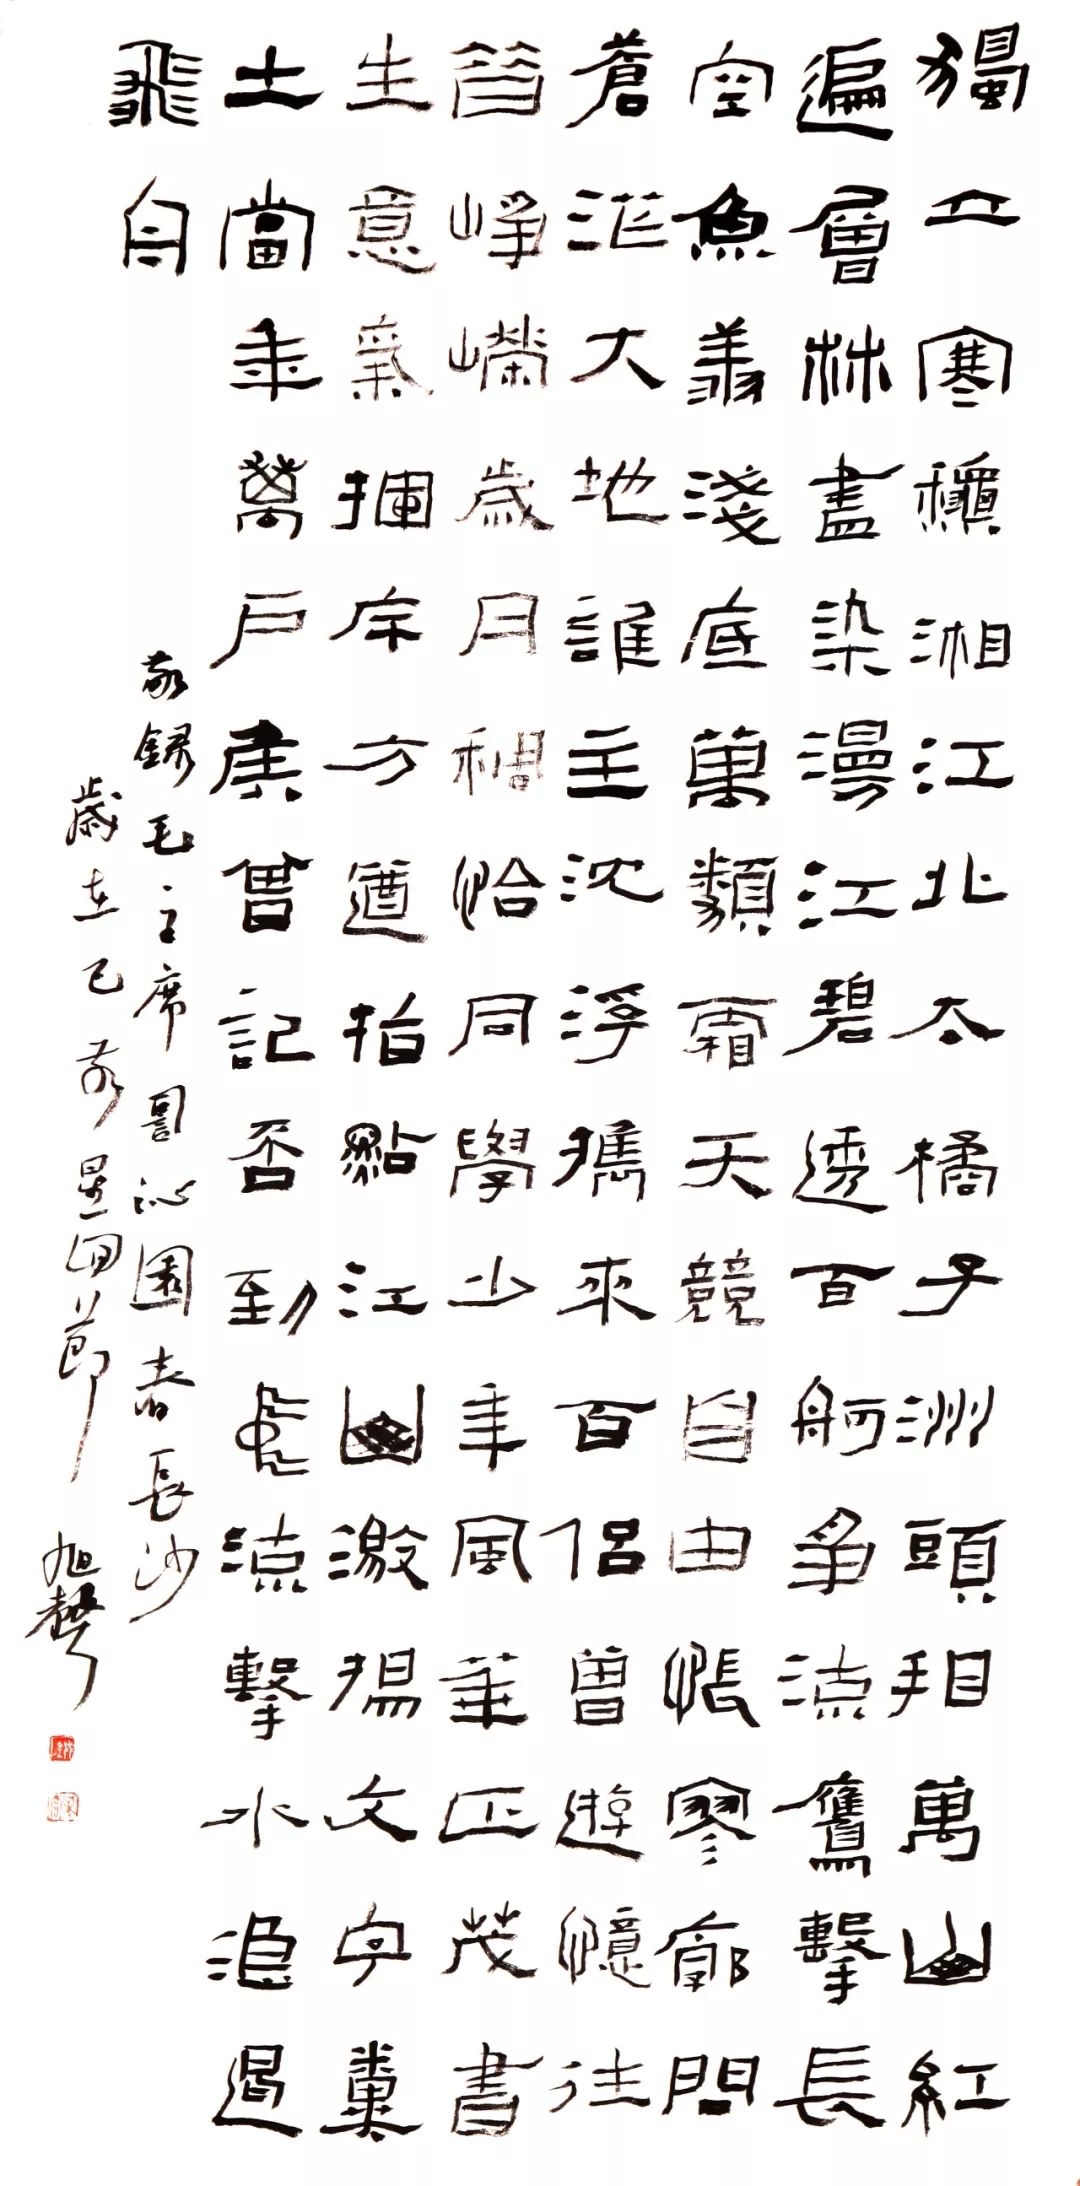 獨立寒龝湘江北去橘子洲頭看萬山紅
遍層林盡染漫江碧透百舸爭流鷹擊長
空魚翔淺底萬類霜天競自由悵寥廓問
蒼茫大地誰主沈浮攜來百侶曾遊憶往
昔崢嶸歲月稠恰同學少年風華正茂書
生意氣揮斥方遒指點江山激揚文字糞
土當年萬戶侯曾記否到中流擊水浪遏
飛舟
敬錄毛主席詞沁園春長沙
歲在己亥星回節
旭聲